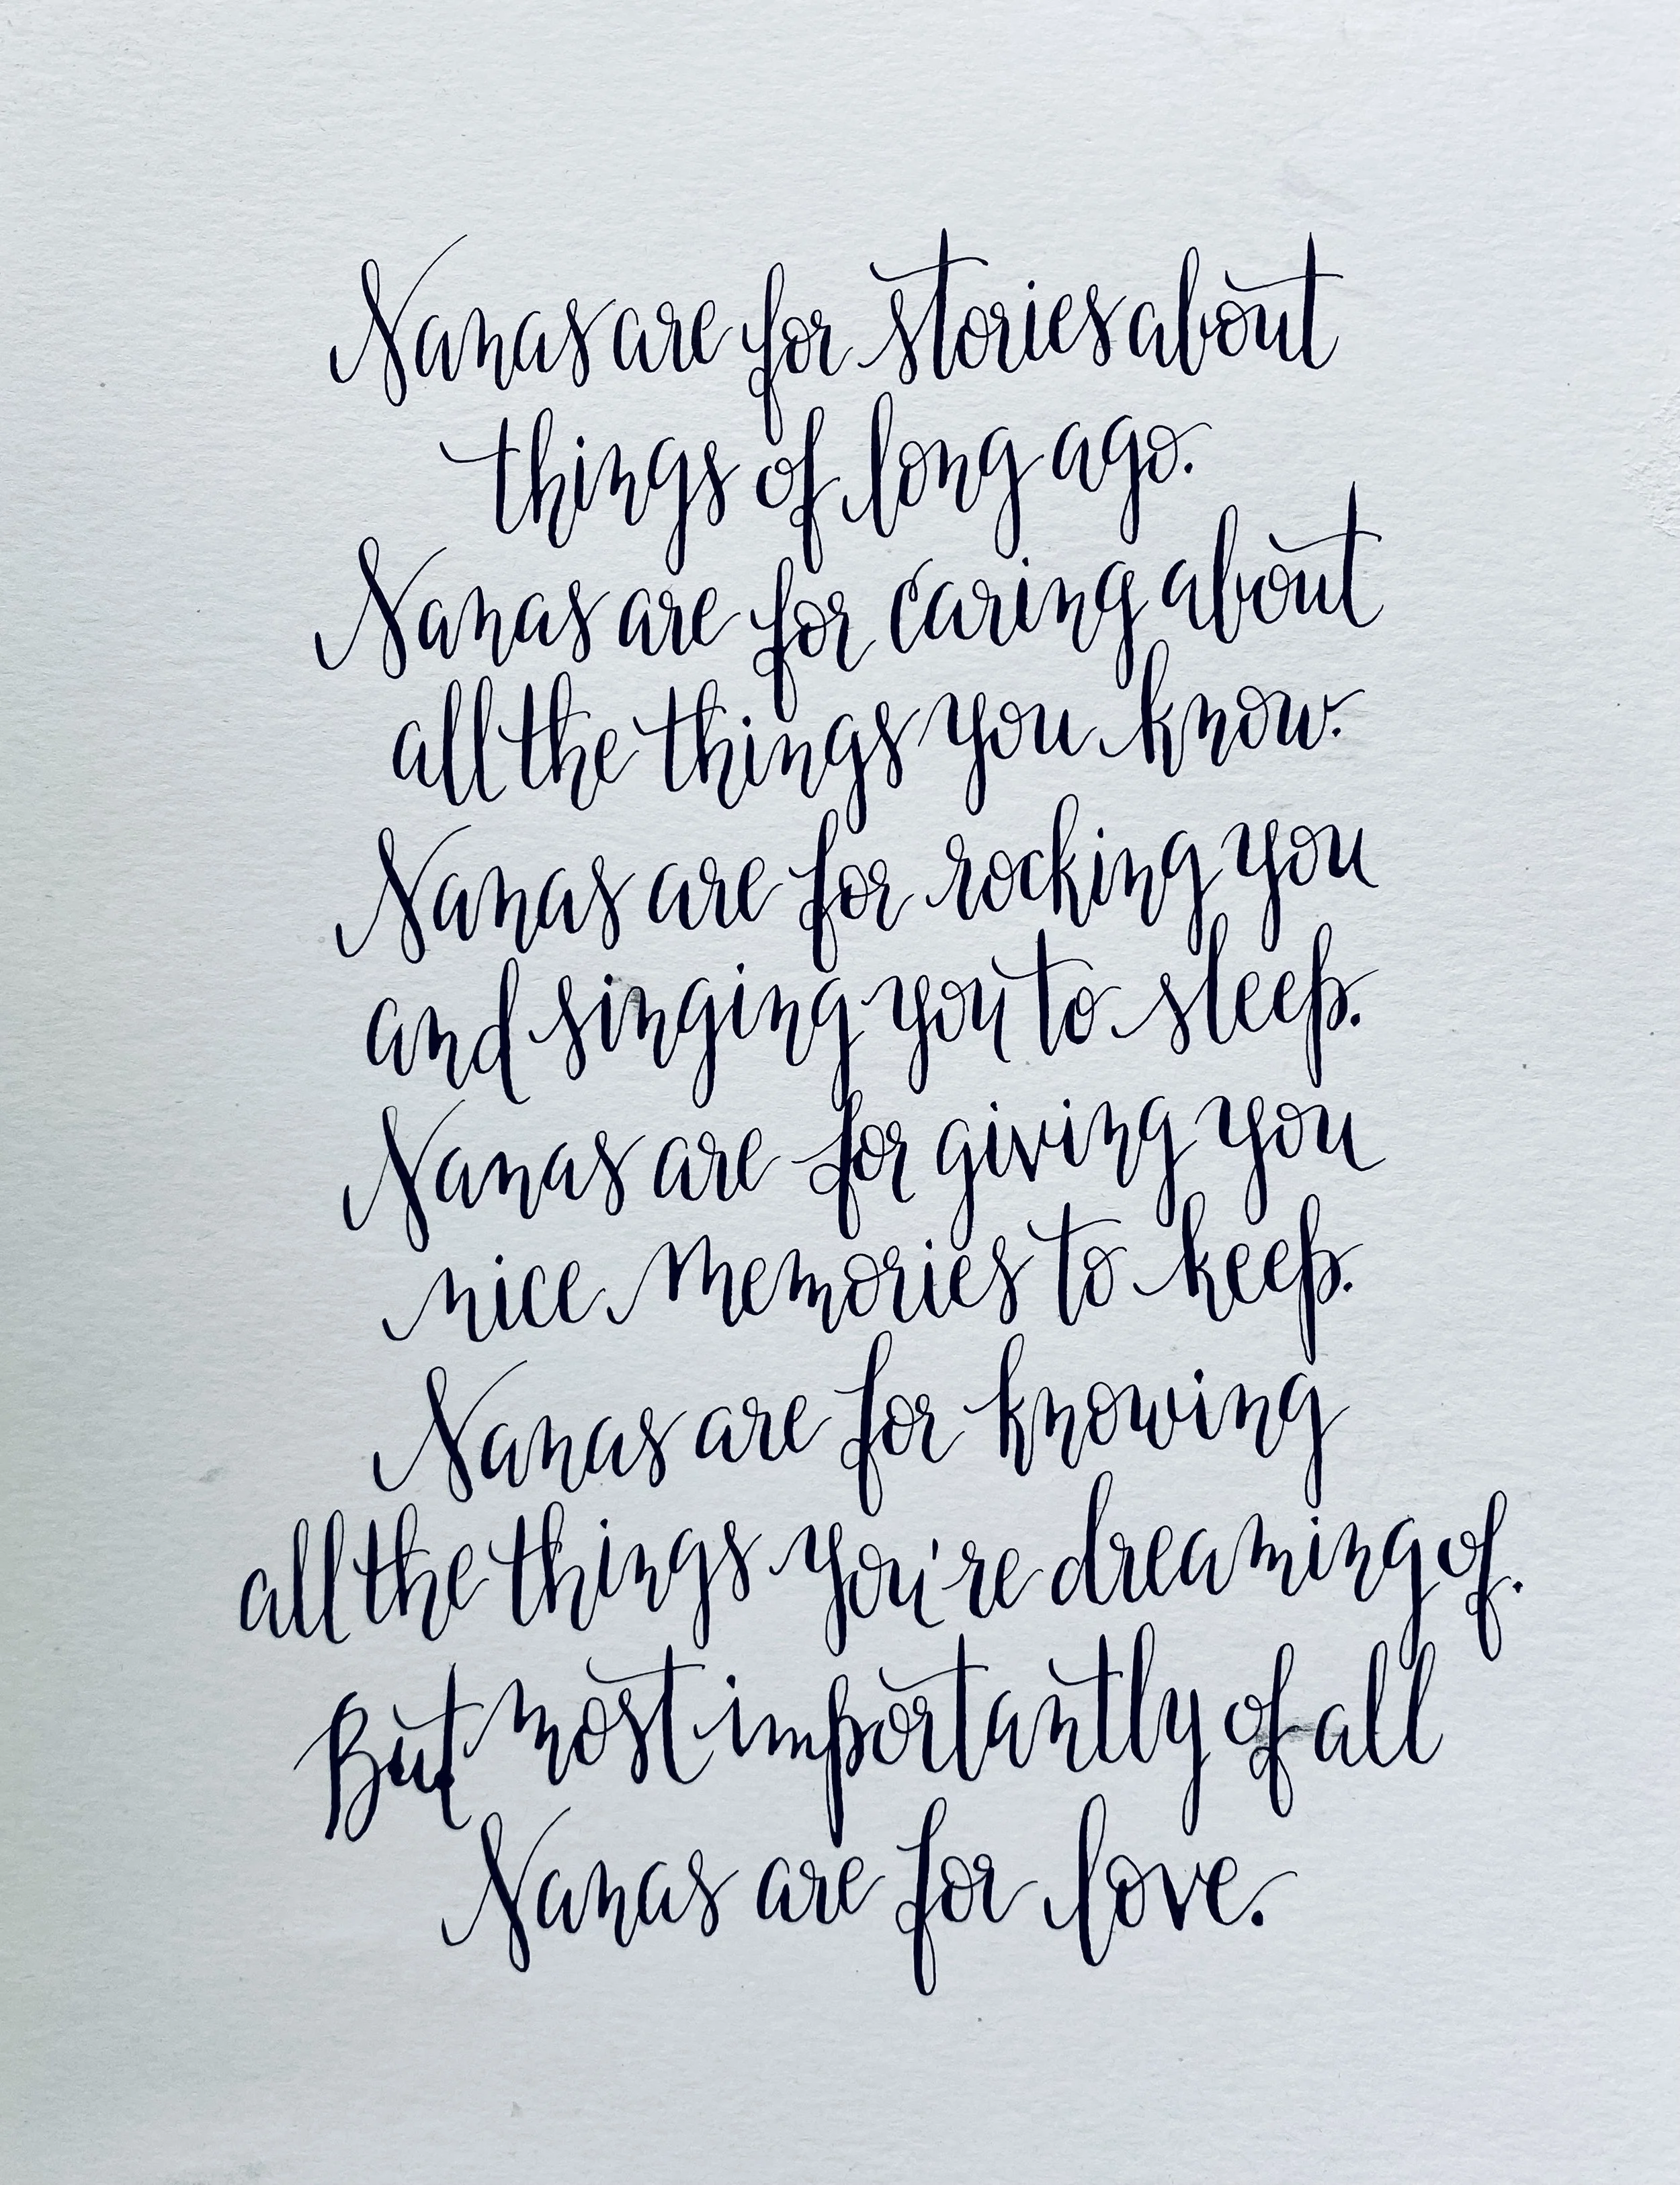 Nanas are for stories about
things of long ago.
Nanas are for caring about
all the things you know.
Nanas are for rocking you
and singing you to sleep.
Nanas are for giving you
nice memories to keep.
Nanas are for knowing
all the things you're dreaming of.
But most importantly of all
Nanas are for love.